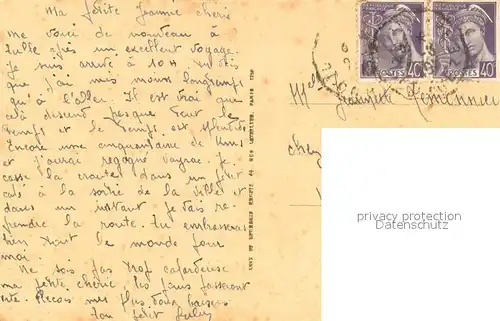 Ma petite Jeannie chérie
me voici de nouveau à
Tulle après un excellent voyage.
Je suis arrivé à 10H
que j'ai mis moins longtemps
qu'à l'aller. Il est vrai que
cela descend presque tout le
temps et le temps est
Encore une cinquantaine de Kms
et j'aurai regagné Vayrac. Je
casse la croûte dans un petit
café à la sortie de la ville et
dans un instant je vais re
prendre la route. Tu embrasseras
bien tout le monde pour
moi.
Ne sois pas trop cafardeuse
ma petite chérie, les jours passeront
vite. Reçois mes plus doux baisers
ton petit
PARIS
RÉPUBLIQUE FRANÇAISE
40c
POSTES
RÉPUBLIQUE FRANÇAISE
40c
POSTES
Jeannette
chez
privacy protection
Datenschutz